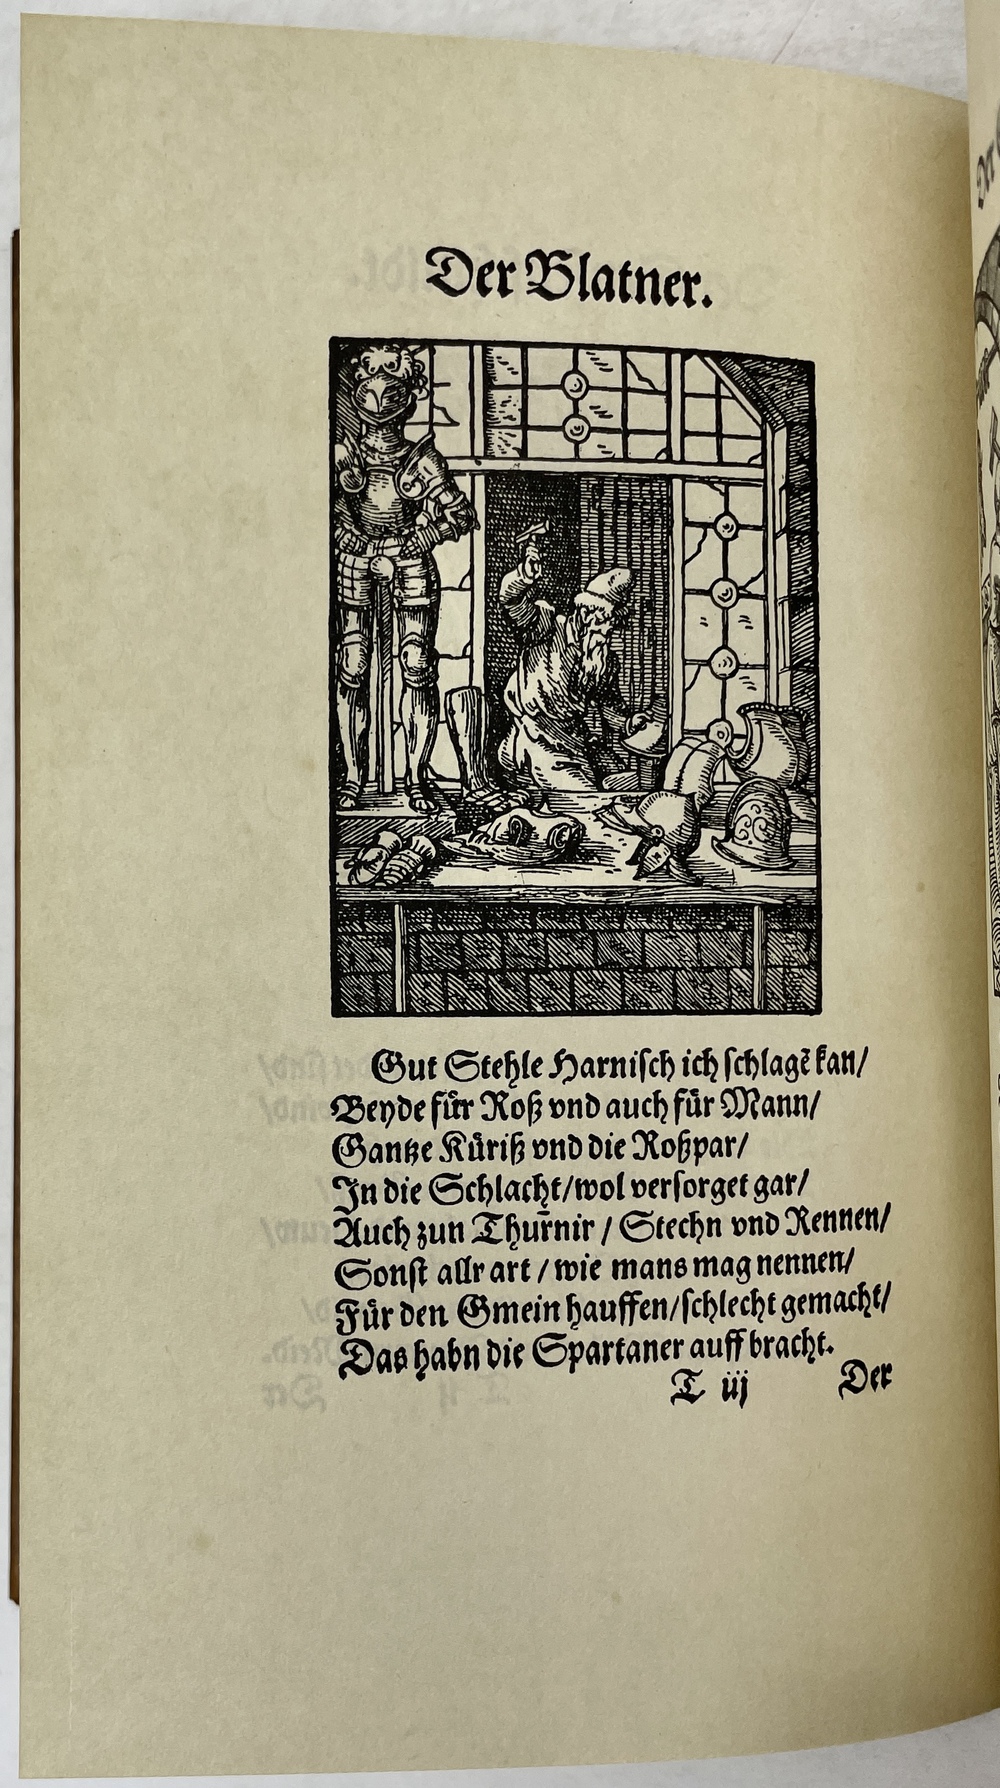 Der Blatner.
Gut Stehle Harnisch ich schlagē kan/
Beyde für Roß vnd auch für Mann/
Gantze Küriß vnd die Roßpar/
In die Schlacht/wol versorget gar/
Auch zun Thur̄nir / Stechn vnd Rennen/
Sonst allr art / wie mans mag nennen/
Für den Gmein hauffen/schlecht gemacht/
Das habn die Spartaner auff bracht.
T iij Der